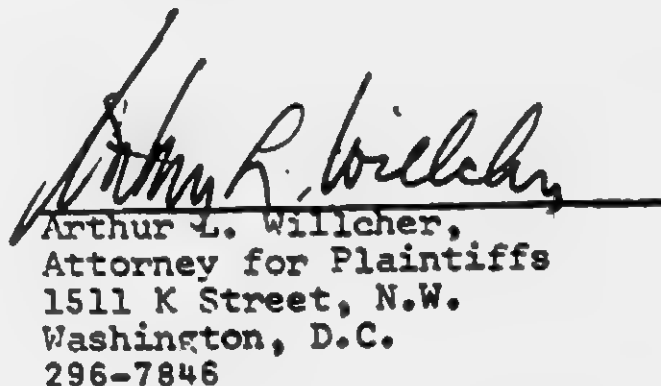 Arthur L. Willcher
Arthur L. Willcher,
Attorney for Plaintiffs
1511 K Street, N.W.
Washington, D.C.
296-7846